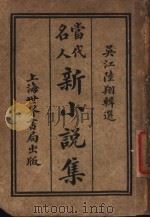 吴江陸翔輯選
當代
名人
新小說集
上海世界書局出版